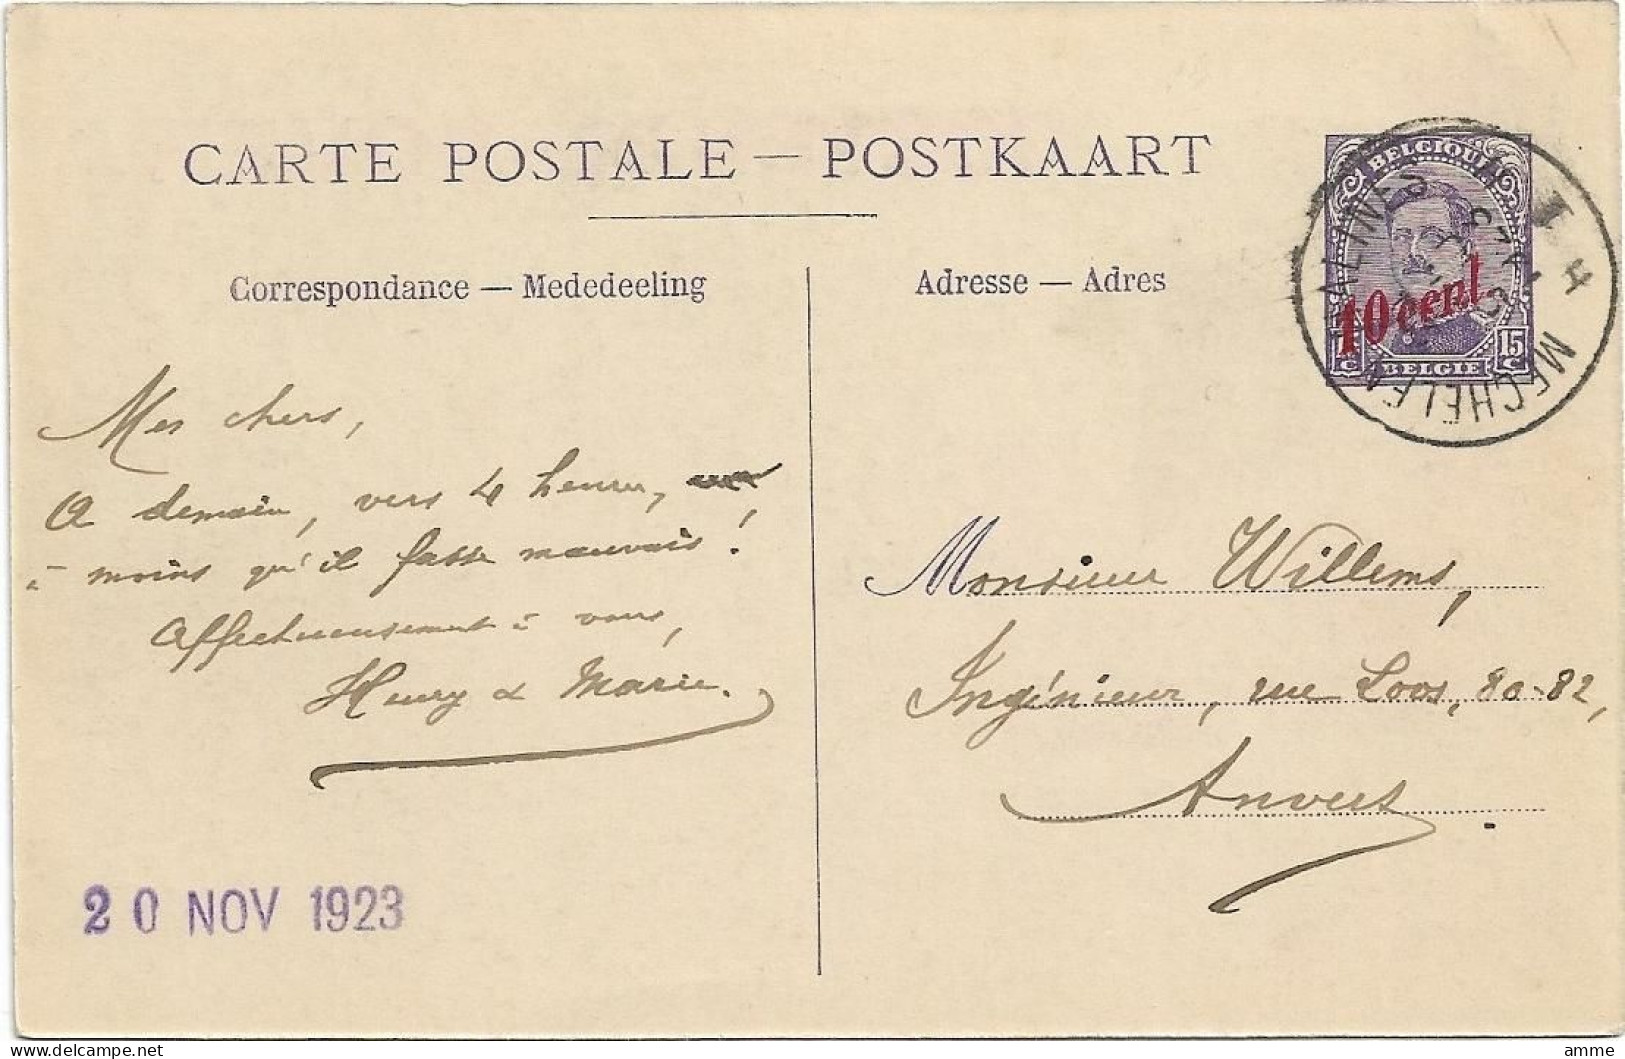 CARTE POSTALE — POSTKAART
Correspondance — Mededeeling
Adresse — Adres
BELGIQUE
10 cent.
15 C
BELGIE
MECHELEN
MALINES
Mes chers,
A demain, vers 4 heures,
à moins qu'il fasse mauvais !
Affectueusement à vous,
Henry & Marie.
Monsieur Willems,
Ingénieur, rue Loos, 80-82,
Anvers.
20 NOV 1923
delcampe.net
amme